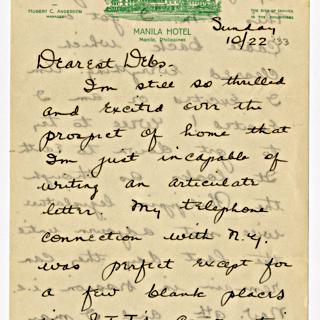 HUBERT C. ANDERSON
MANAGER
MANILA HOTEL
Manila, Philippines
Sunday
10/22/33
Dearest Debs-
I'm still so thrilled
and excited over the
prospect of home that
I'm just incapable of
writing an articulate
letter. My telephone
connection with N.Y.
was perfect except for
a few blank places